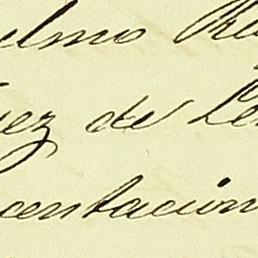 elmo R
ez de Le
centacion